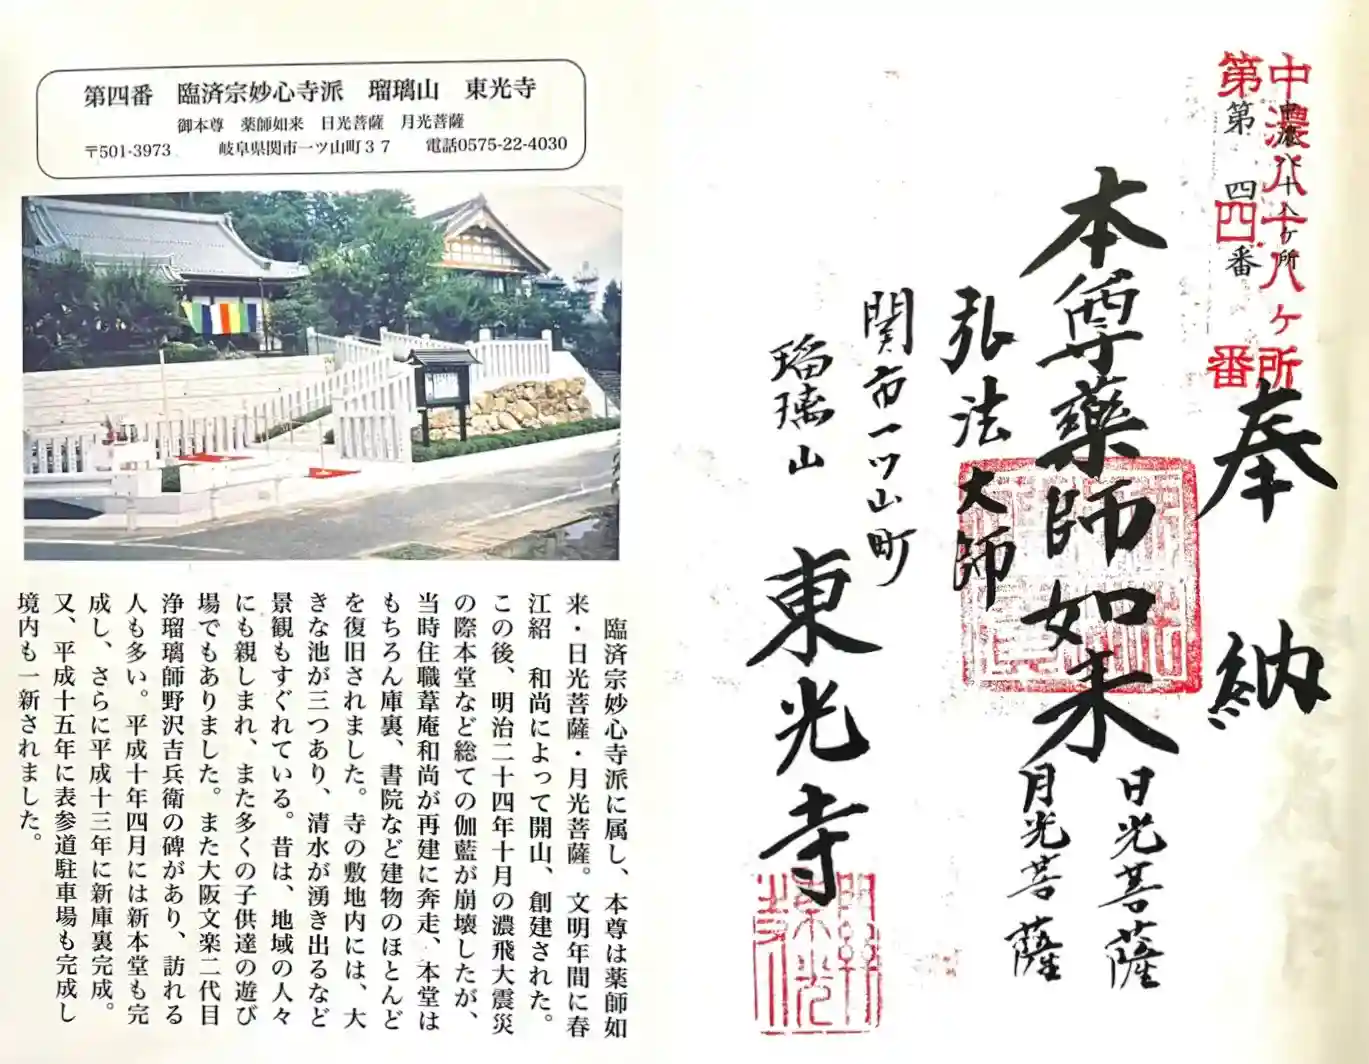 第四番　臨済宗妙心寺派　瑠璃山　東光寺
御本尊　薬師如来　日光菩薩　月光菩薩
〒501-3973　岐阜県関市一ツ山町37　電話0575-22-4030
臨済宗妙心寺派に属し、本尊は薬師如
来・日光菩薩・月光菩薩。文明年間に春
江紹　和尚によって開山、創建された。
この後、明治二十四年十月の濃飛大震災
の際本堂など総ての伽藍が崩壊したが、
当時住職葦庵和尚が再建に奔走、本堂は
もちろん庫裏、書院など建物のほとんど
を復旧されました。寺の敷地内には、大
きな池が三つあり、清水が湧き出るなど
景観もすぐれている。昔は、地域の人々
にも親しまれ、また多くの子供達の遊び
場でもありました。また大阪文楽二代目
浄瑠璃師野沢吉兵衛の碑があり、訪れる
人も多い。平成十年四月には新本堂も完
成し、さらに平成十三年に新庫裏完成。
又、平成十五年に表参道駐車場も完成し
境内も一新されました。
中濃八十八ヶ所
第四番
中濃八十八ヶ所
第四番
奉納
本尊薬師如来
日光菩薩
月光菩薩
弘法大師
関市一ツ山町
瑠璃山
東光寺